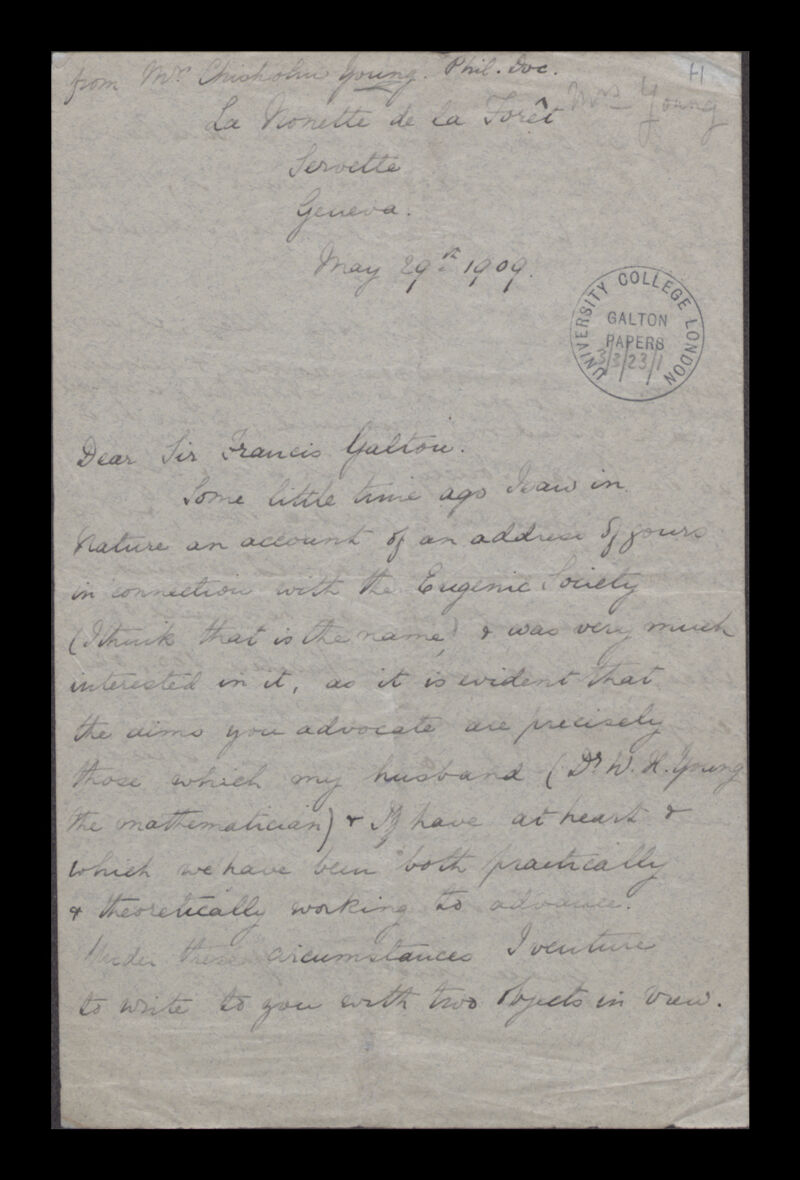 from Mrs. Chisholm Young. Phil. Doc.
H
Mrs Young
La Nonette de la Forêt
Servette
Geneva.
May 29th 1909.
UNIVERSITY COLLEGE LONDON
GALTON
PAPERS
3/3/23/1
Dear Sir Francis Galton.
Some little time ago I saw in
Nature an account of an address of yours
in connection with the Eugenic Society
(I think that is the name) & was very much
interested in it, as it is evident that
the aims you advocate are precisely
those which my husband (Dr W. H. Young
the mathematician) & I have at heart &
which we have been both practically
& theoretically working to advance.
Under these circumstances I venture
to write to you with two objects in view.